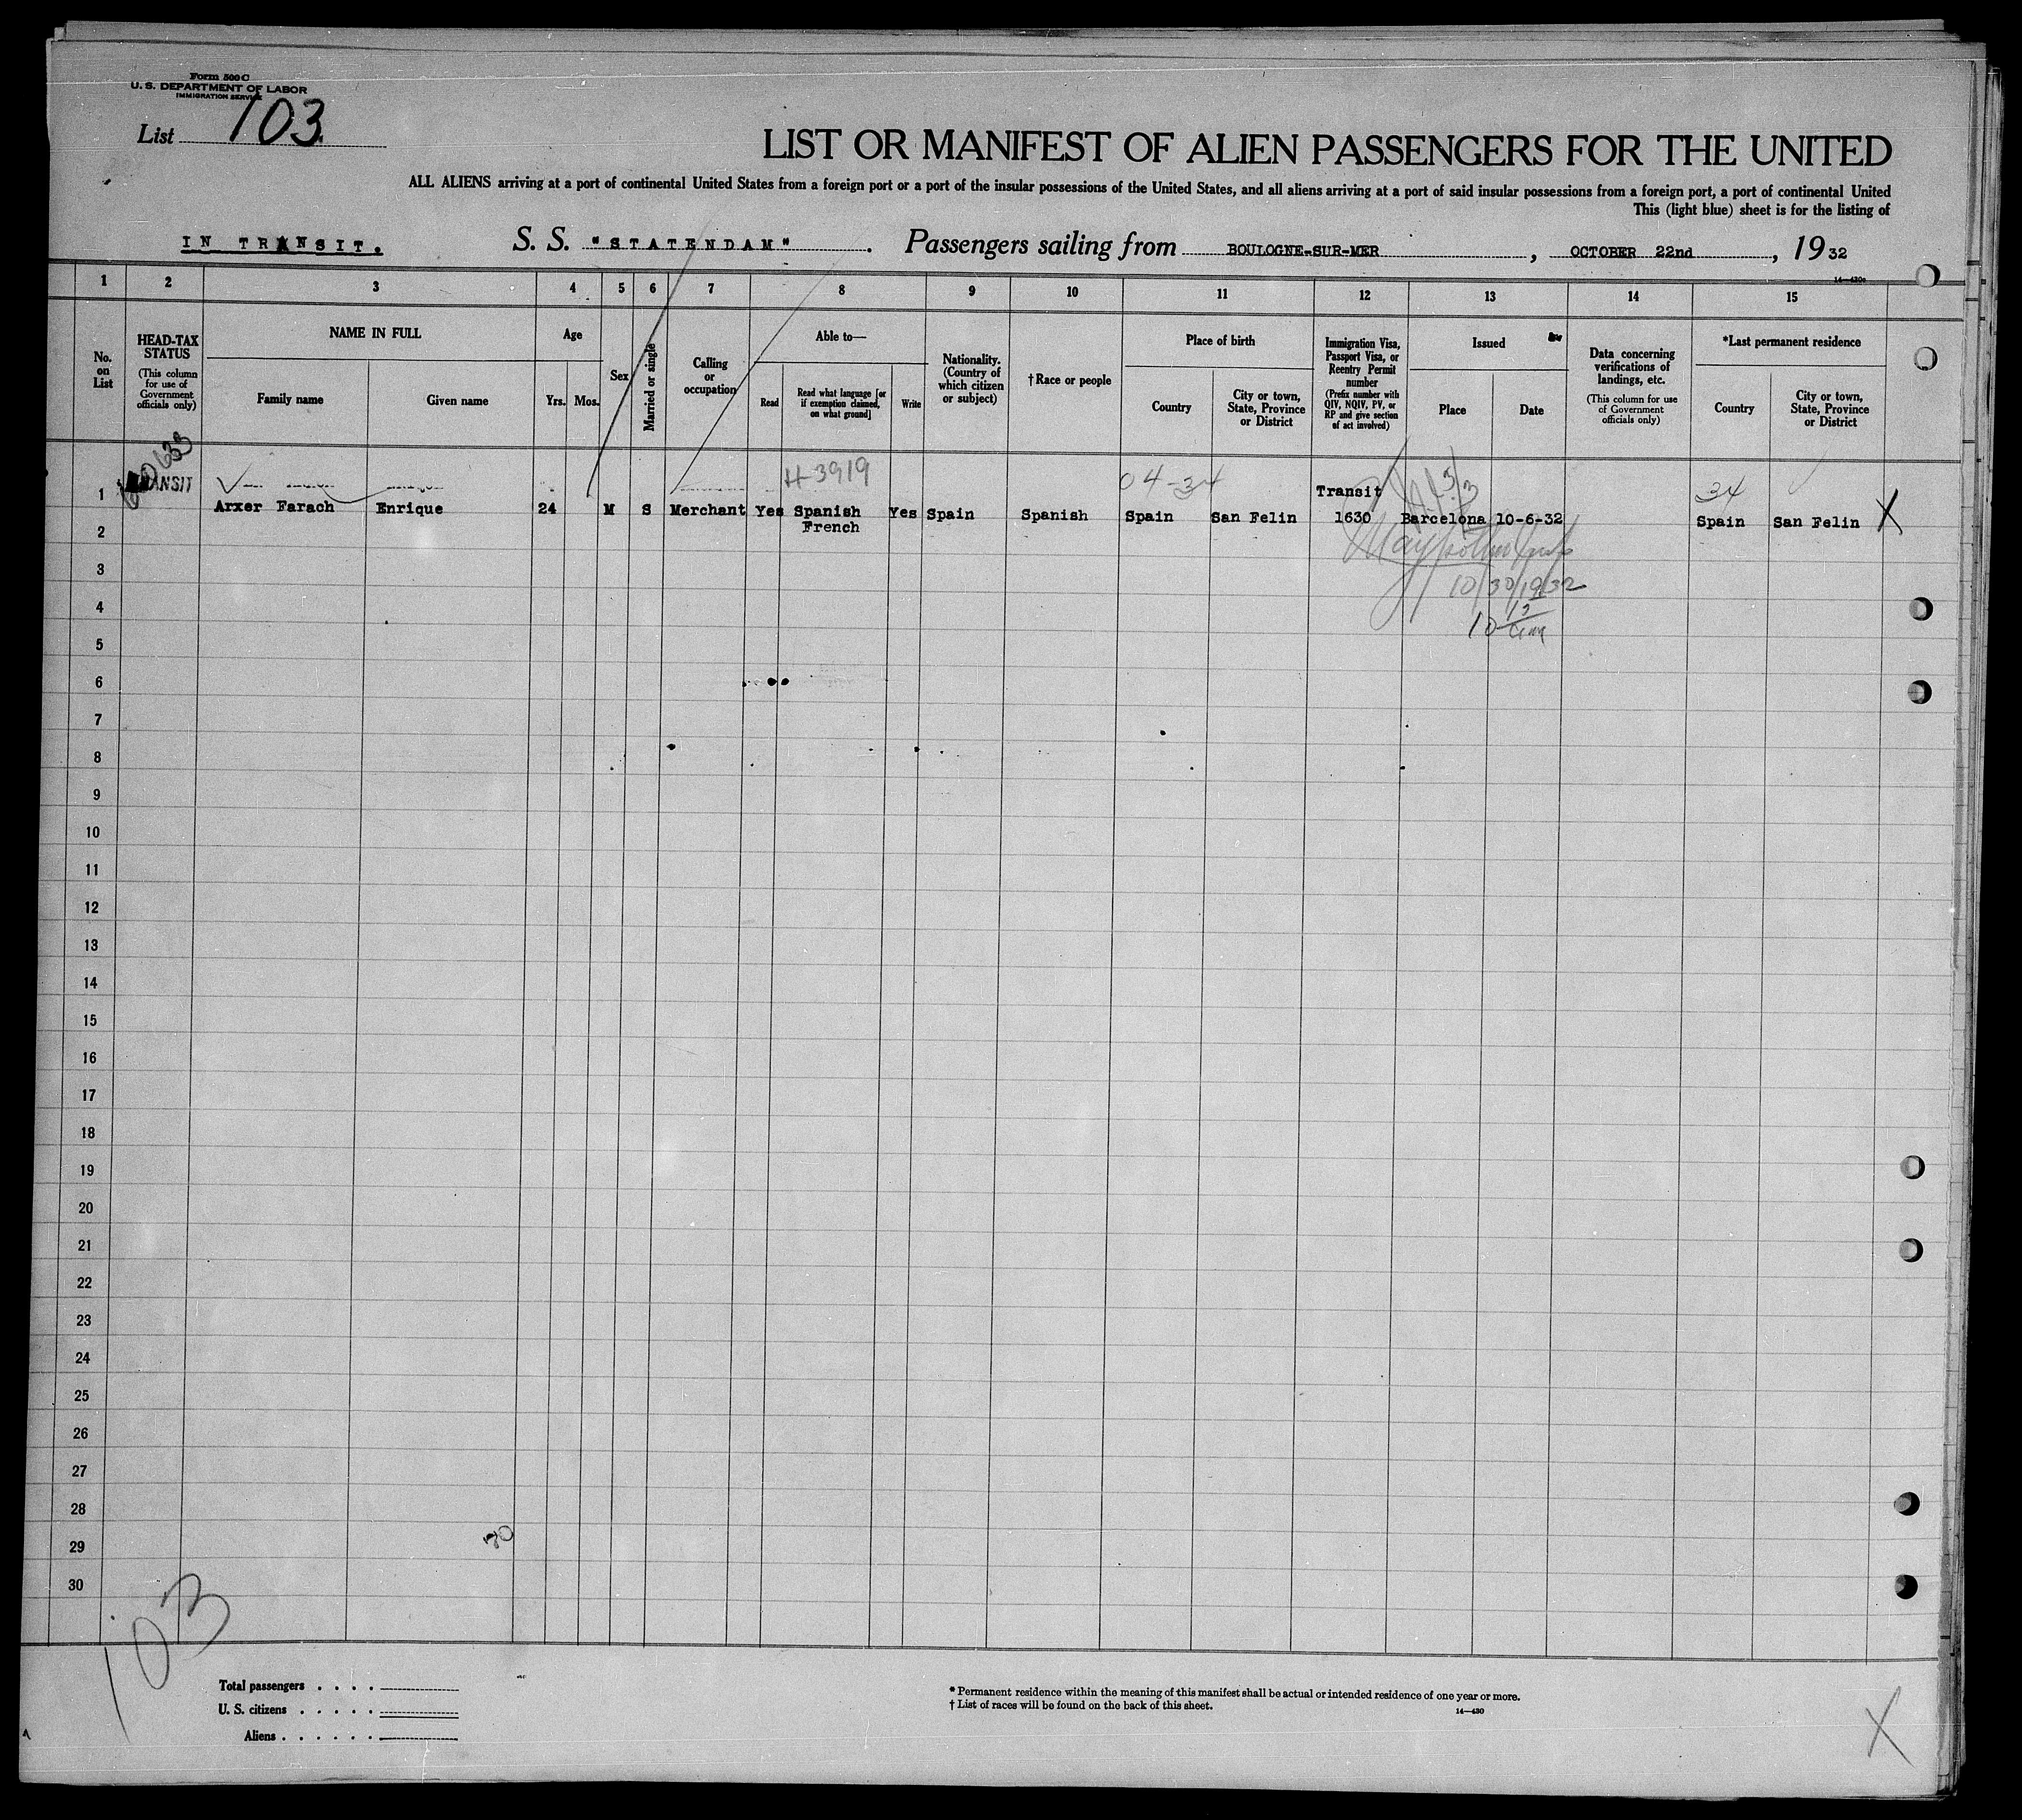 Form 500 C
U. S. DEPARTMENT OF LABOR
IMMIGRATION SERVICE
List 103
LIST OR MANIFEST OF ALIEN PASSENGERS FOR THE UNITED
ALL ALIENS arriving at a port of continental United States from a foreign port or a port of the insular possessions of the United States, and all aliens arriving at a port of said insular possessions from a foreign port, a port of continental United
This (light blue) sheet is for the listing of
IN TRANSIT. S. S. "STATENDAM". Passengers sailing from BOULOGNE-SUR-MER, OCTOBER 22nd, 1932
1 2 3 4 5 6 7 8 9 10 11 12 13 14 15
No. on List
HEAD-TAX STATUS
(This column for use of Government officials only)
NAME IN FULL
Family name
Given name
Age
Yrs. Mos.
Sex
Married or single
Calling or occupation
Able to—
Read
Read what language [or if exemption claimed, on what ground]
Write
Nationality. (Country of which citizen or subject)
†Race or people
Place of birth
Country
City or town, State, Province or District
Immigration Visa, Passport Visa, or Reentry Permit number
(Prefix number with QIV, NQIV, PV, or RP and give section of act involved)
Issued
Place
Date
Data concerning verifications of landings, etc.
(This column for use of Government officials only)
*Last permanent residence
Country
City or town, State, Province or District
TRANSIT H-3919 04-34 34
1 Arxer Farach Enrique 24 M S Merchant Yes Spanish French Yes Spain Spanish Spain San Felin Transit 1630 Barcelona 10-6-32 Spain San Felin X
2
3 10/30/1932
4
5
6
7
8
9
10
11
12
13
14
15
16
17
18
19
20
21
22
23
24
25
26
27
28
29
30
103
Total passengers . . . .
U. S. citizens . . . . .
Aliens . . . . . .
* Permanent residence within the meaning of this manifest shall be actual or intended residence of one year or more.
† List of races will be found on the back of this sheet.
14—430
X